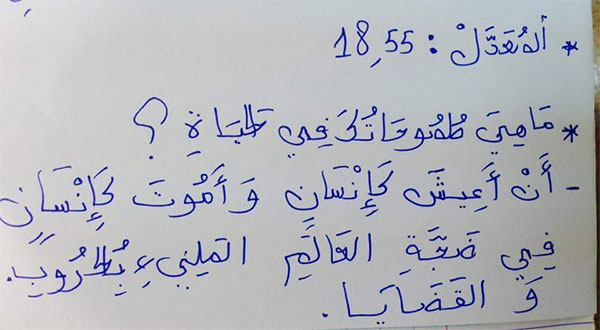 * ألمُعَدَّلْ : 18,55
* مَا هِيَ طُمُوحَاتُكَ فِي الحَيَاةِ ؟
- أَنْ أَعِيشَ كَإِنْسَانٍ وَ أَمُوتَ كَإِنْسَانٍ
فِي ضَجَّةِ العَالَمِ المَلِيءِ بِالحُرُوبِ.
وَ القَضَايَا.